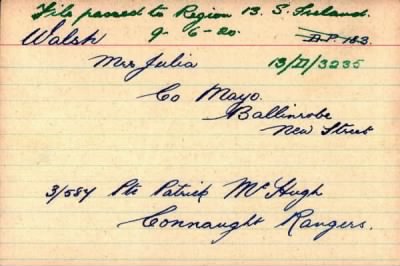 File passed to Region 13. S. Ireland.
Walsh 9-6-20. D.P. 183.
Mrs Julia 13/D/3235
Co Mayo.
Ballinrobe
New Street
3/587 Pte Patrick McHugh
Connaught Rangers.